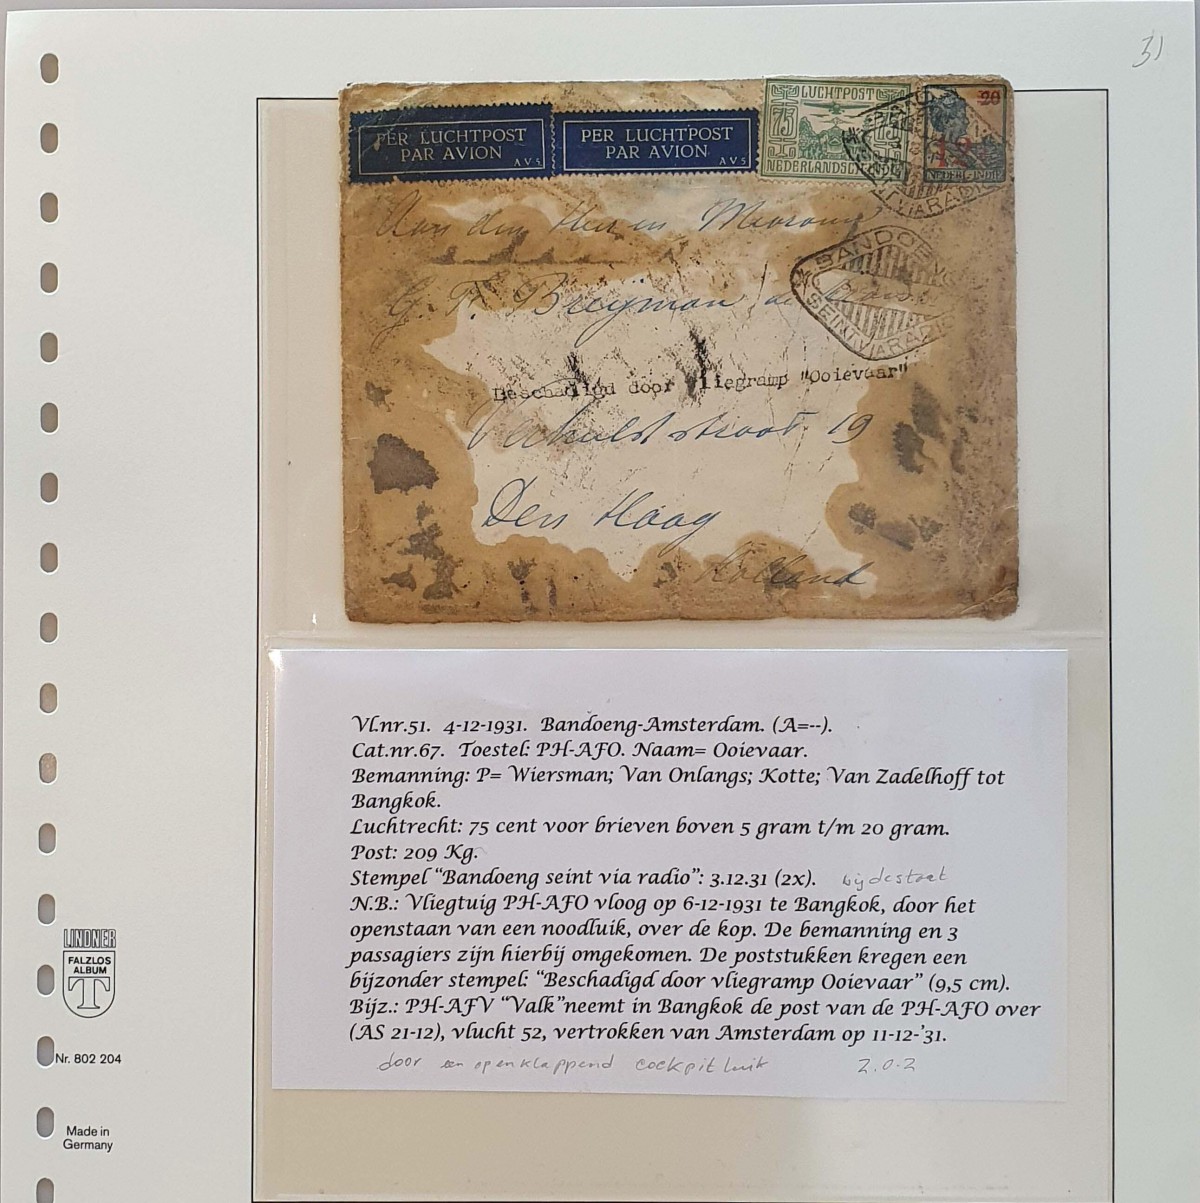 31
PER LUCHTPOST
PAR AVION
AVS
PER LUCHTPOST
PAR AVION
AVS
LUCHTPOST
75 75
NEDERLANDSCH
20
12
NEDERL-INDIE
Aan den Heer en Mevrouw
G. F. Breijman de
BANDOENG
SEINT VIA RADIO
Beschadigd door vliegramp "Ooievaar"
Verhulststraat 19
Den Haag
Holland
Vl.nr.51. 4-12-1931. Bandoeng-Amsterdam. (A=--).
Cat.nr.67. Toestel: PH-AFO. Naam= Ooievaar.
Bemanning: P= Wiersman; Van Onlangs; Kotte; Van Zadelhoff tot
Bangkok.
Luchtrecht: 75 cent voor brieven boven 5 gram t/m 20 gram.
Post: 209 Kg.
Stempel “Bandoeng seint via radio”: 3.12.31 (2x).
N.B.: Vliegtuig PH-AFO vloog op 6-12-1931 te Bangkok, door het
openstaan van een noodluik, over de kop. De bemanning en 3
passagiers zijn hierbij omgekomen. De poststukken kregen een
bijzonder stempel: “Beschadigd door vliegramp Ooievaar” (9,5 cm).
Bijz.: PH-AFV “Valk”neemt in Bangkok de post van de PH-AFO over
(AS 21-12), vlucht 52, vertrokken van Amsterdam op 11-12-’31.
door een openklappend cockpit luik z.o.z
LINDNER
FALZLOS
ALBUM
T
Nr. 802 204
Made in
Germany